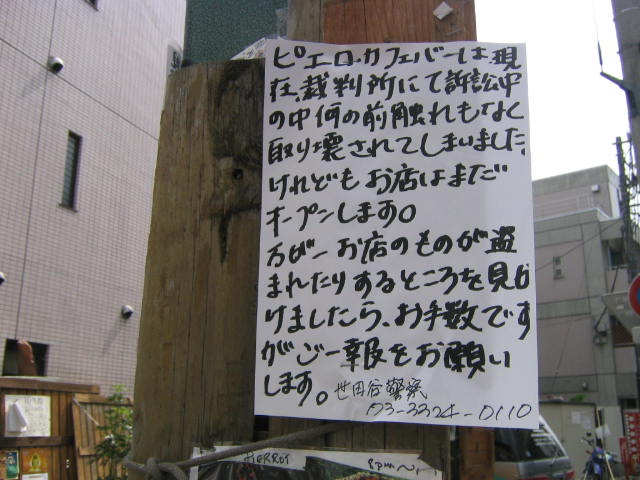 ピエロ・カフェバーは現
在、裁判所にて訴訟中
の中何の前触れもなく
取り壊されてしまいました。
けれどもお店はまだ
オープンします。
万が一お店のものが盗
まれたりするところを見か
けましたら、お手数です
がご一報をお願い
します。世田谷警察
03-3324-0110
PIERROT